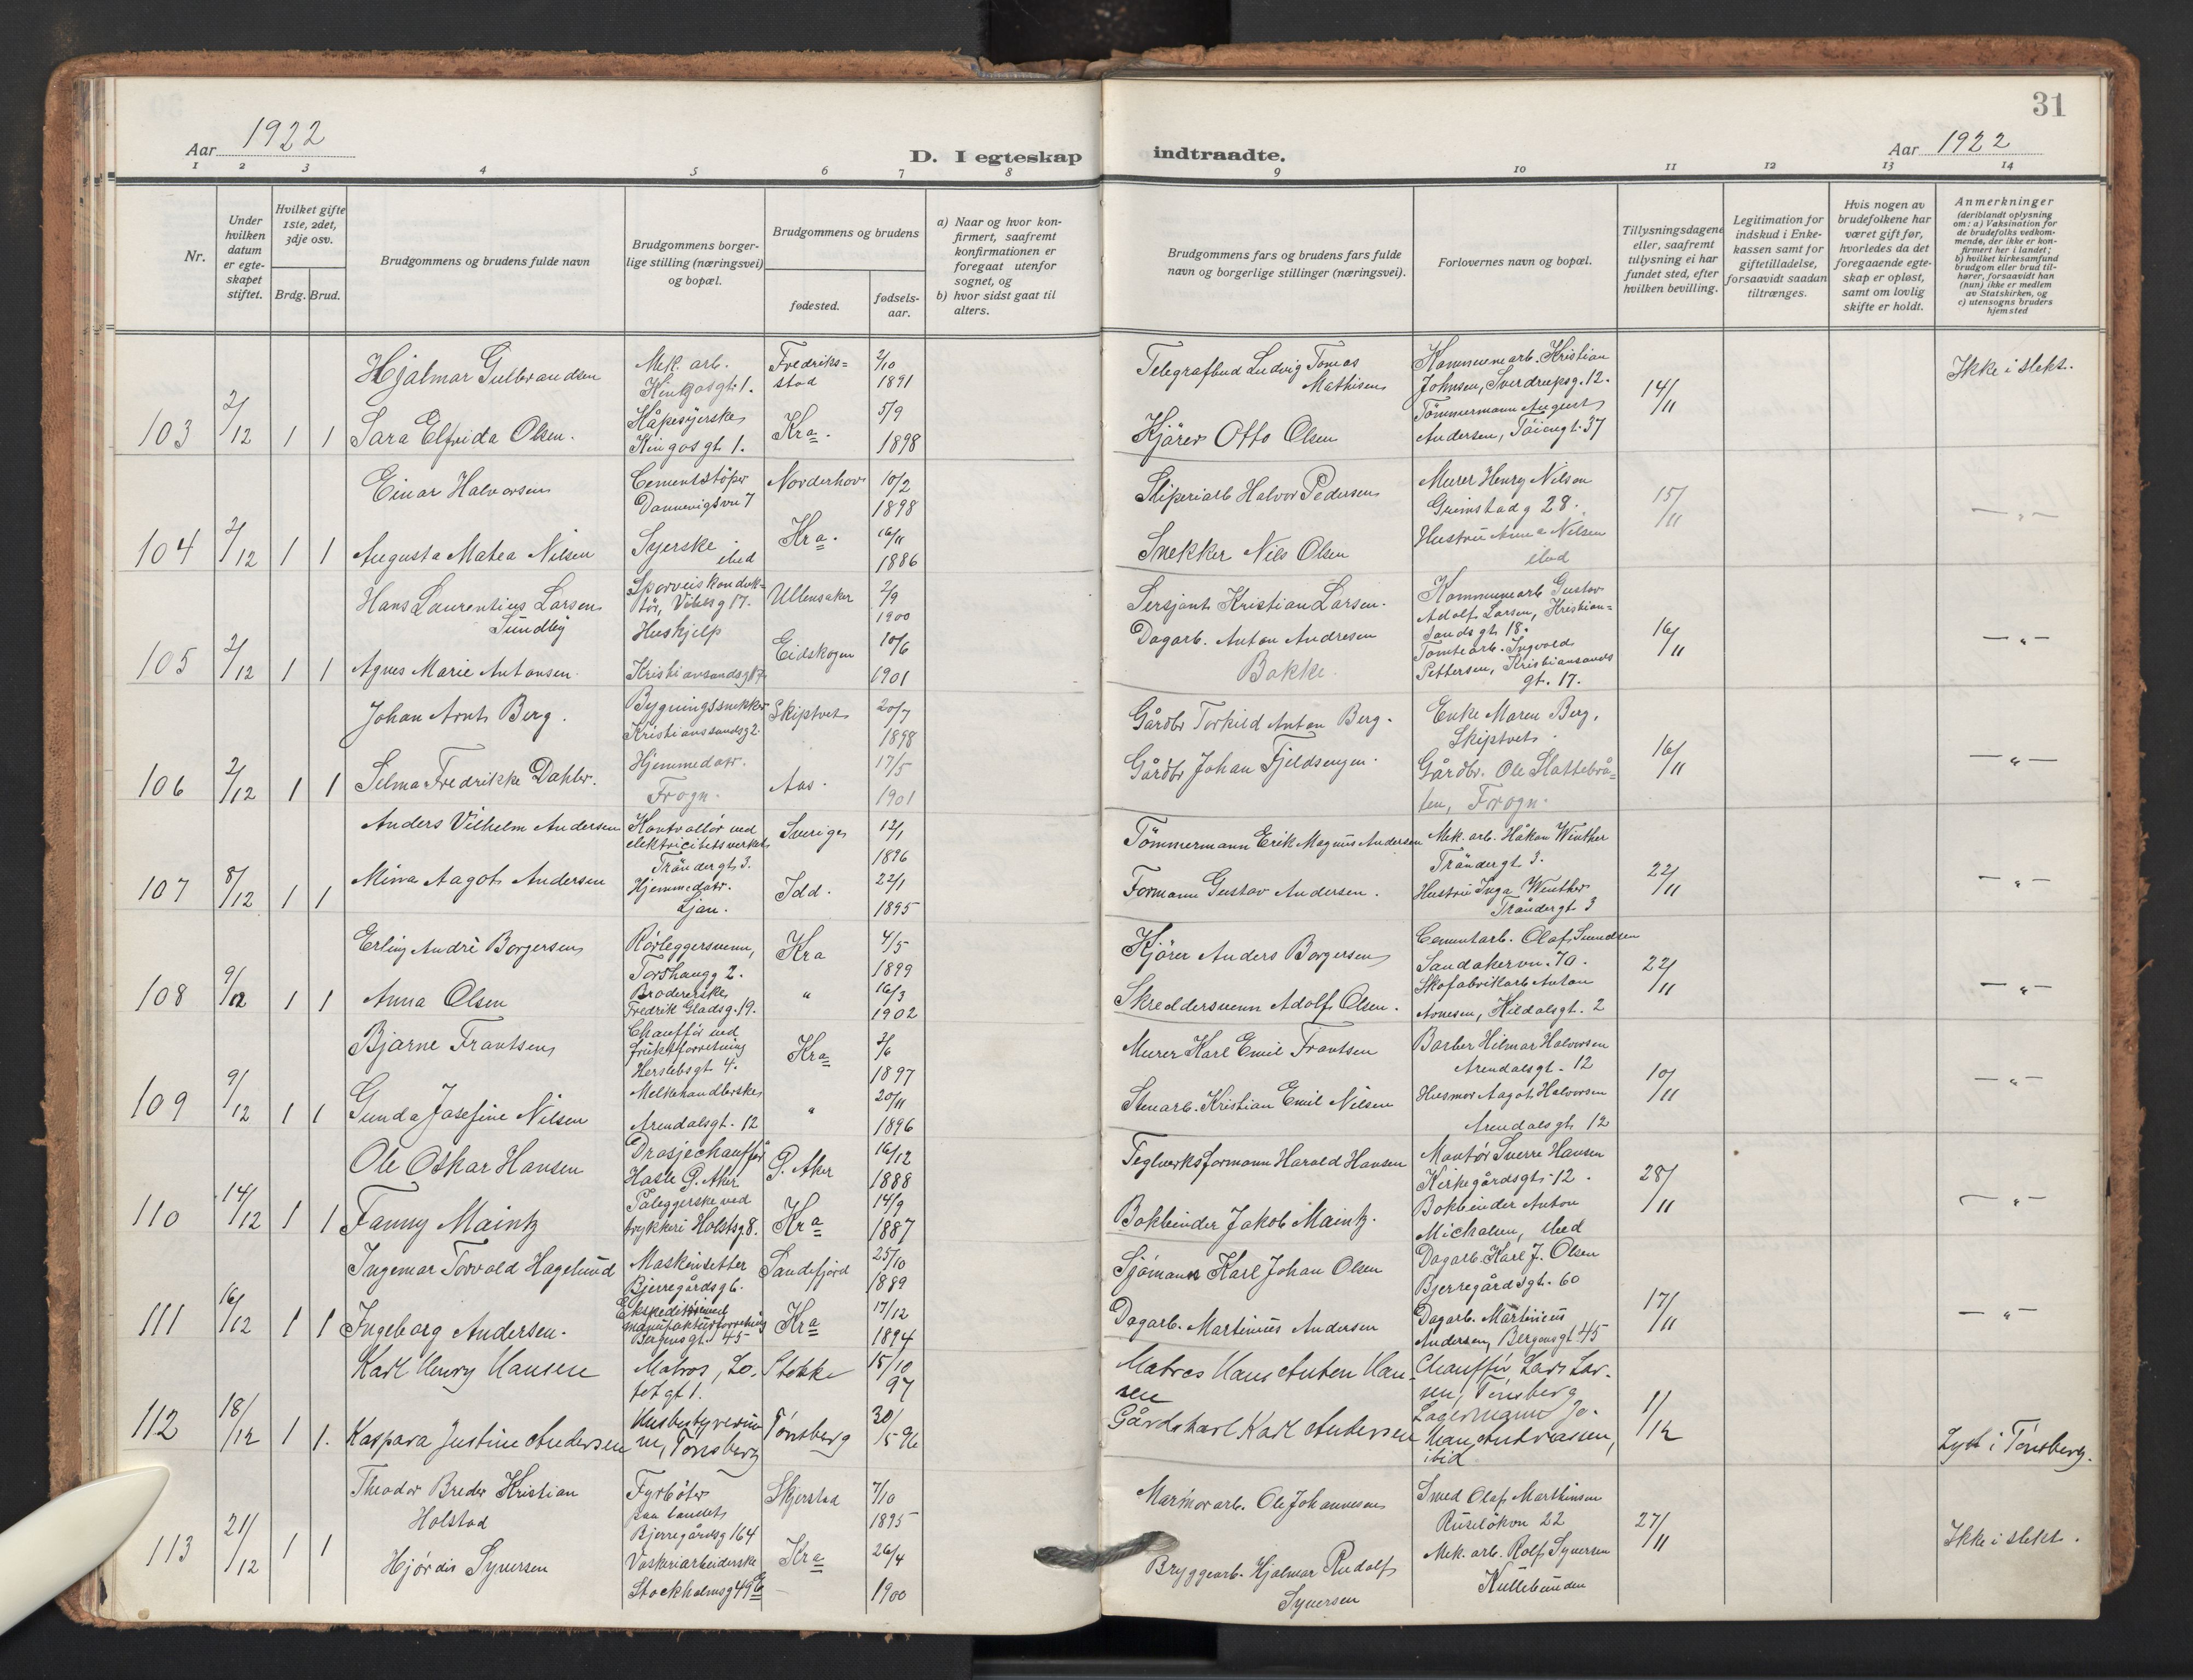 31
Aar 1922
D. I egteskap indtraadte.
Aar 1922
1 2 3 4 5 6 7 8 9 10 11 12 13 14
Nr.
Under
hvilken
datum
er egte-
skapet
stiftet.
Hvilket gifte
1ste, 2det,
3dje osv.
Brdg. Brud.
Brudgommens og brudens fulde navn
Brudgommens borger-
lige stilling (næringsvei)
og bopæl.
Brudgommens og brudens
fødested.
fødsels-
aar.
a) Naar og hvor kon-
firmert, saafremt
konfirmationen er
foregaat utenfor
sognet, og
b) hvor sidst gaat til
alters.
Brudgommens fars og brudens fars fulde
navn og borgerlige stillinger (næringsvei).
Forlovernes navn og bopæl.
Tillysningsdagene
eller, saafremt
tillysning ei har
fundet sted, efter
hvilken bevilling.
Legitimation for
indskud i Enke-
kassen samt for
giftetilladelse,
forsaavidt saadan
tiltrænges.
Hvis nogen av
brudefolkene har
været gift før,
hvorledes da det
foregaaende egte-
skap er opløst,
samt om lovlig
skifte er holdt.
Anmerkninger
(deriblandt oplysning
om: a) Vaksination for
de brudefolks vedkom-
mende, der ikke er kon-
firmert her i landet;
b) hvilket kirkesamfund
brudgom eller brud til-
hører, forsaavidt han
(hun) ikke er medlem
av Statskirken, og
c) utensogns bruders
hjemsted
103 2/12 1 1
Hjalmar Gulbrandsen
Mek. arb.
Kingosgt. 1.
Fredriks=
stad
2/10
1891
Telegrafbud Ludvig Tomas
Mathisen
Kommunearb. Kristian
Johnsen, Sverdrupsg. 12.
14/11
Ikke i slekt.
Sara Elfrida Olsen.
Kåpesyerske
Kingosgt. 1.
Kra.
5/9
1898
Kjører Otto Olsen
Tømmermann August
Andersen, Tøiengt. 37
104 2/12 1 1
Einar Halvorsen
Cementstøper
Dannevigsvn 7
Norderhov
10/2
1898
Sliperiarb Halvor Pedersen
Murer Henry Nilsen
Grimstadg 28.
15/11
— " —
Augusta Matea Nilsen
Syerske
ibid
Kra.
16/11
1886
Snekker Nils Olsen
Hustru Anna Nilsen
ibid
105 2/12 1 1
Hans Laurentius Larsen
Sundby
Sporveiskonduk=
tør, Vibesg 17.
Ullensaker
2/9
1900
Sersjant Kristian Larsen.
Kommunearb Gustav
Adolf Larsen, Kristian=
sandsgt. 18.
16/11
— " —
Agnes Marie Antonsen.
Hushjelp
Kristiansandsg 17
Eidskogen
10/6
1901
Dagarb. Anton Andresen
Bakke.
Tomtearb. Ingvald
Pettersen, Kristiansands
gt. 17.
106 2/12 1 1
Johan Arnt Berg.
Bygningssnekker
Kristianssandsg 2.
Skiptvet
20/7
1898
Gårdbr Torkild Anton Berg.
Enke Maren Berg,
Skiptvet.
16/11
— " —
Selma Fredrikke Dahler.
Hjemmedatr.
Frogn.
Aas.
17/5
1901
Gårdbr Johan Fjeldsengen.
Gårdbr. Ole Slattebrå=
ten, Frogn.
107 8/12 1 1
Anders Vilhelm Andersen
Kontrollør ved
elektricitetsverket
Trøndergt. 3.
Sverige
12/1
1896
Tømmermann Erik Magnus Andersen
Mek. arb. Håkon Winther
Trøndergt 3.
22/11
— " —
Minna Aagot Andersen
Hjemmedatr.
Ljan.
Idd.
22/1
1895
Formann Gustav Andersen.
Hustru Inga Winther
Trøndergt 3
108 9/12 1 1
Erling Andrè Borgersen
Rørleggersvenn,
Torshaugg 2.
Kra
4/5
1899
Kjører Anders Borgersen
Cementarb. Olaf Svendsen
Sandakervn. 70.
22/11
— " —
Anna Olsen
Brodererske
Fredrik Gladsg. 19.
"
16/3
1902
Skreddersvenn Adolf Olsen.
Skofabrikarb Anton
Arnesen, Hildalsgt. 2
109 9/12 1 1
Bjarne Frantsen
Chauffør ved
fruktforretning
Herslebsgt 4.
Kra
2/6
1897
Murer Karl Emil Frantsen
Barber Hilmar Halvorsen
Arendalsgt. 12
10/11
— " —
Gunda Josefine Nilsen
Melkehandlerske
Arendalsgt. 12
"
20/11
1896
Stenarb. Kristian Emil Nilsen
Husmor Aagot Halvorsen
Arendalsgt 12
110 14/12 1 1
Ole Oskar Hansen
Drosjechauffør
Hasle Ø. Aker
Ø. Aker
16/12
1888
Teglverksformann Harald Hansen
Montør Sverre Hansen
Kirkegårdsgt. 12.
28/11
— " —
Fanny Maintz
Påleggerske ved
trykkeri Holstsg 8.
Kra
14/9
1887
Bokbinder Jakob Maintz.
Bokbinder Anton
Michalsen, ibid
111 16/12 1 1
Ingemar Torvald Hagelund
Maskinsetter
Bjerregårdsg 6.
Sandefjord
25/10
1889
Sjømann Karl Johan Olsen
Dagarb. Karl J. Olsen
Bjerregårdsgt. 60
17/11
— " —
Ingeborg Andersen.
manufakturforretning
Bergensgt. 45
Kra
17/12
1894
Dagarb. Martinius Andersen
Dagarb. Martinius
Andersen, Bergensgt 45
112 18/12 1 1.
Karl Henry Hansen
Matros, Lo-
fotgt 1.
Stokke
15/10
97
Matros Hans Anton Han-
sen
Chauffør Lars Lar-
sen, Tønsberg
1/12
Lyst i Tønsberg.
Kaspara Justine Andersen
Husbestyrerin-
ne, Tønsberg
Tønsberg
30/5 96
Gårdskarl Karl Andersen
Lagermann Jo-
han Andreassen,
ibid
113 21/12 1 1
Theodor Breder Kristian
Holstad
Fyrbøter
paa landet
Bjerregårdsg 164
Skjerstad
7/10
1895
Marmorarb. Ole Johannesen
Smed Olaf Marthinsen
Ruseløkvn 22
27/11
Ikke i slekt.
Hjørdis Syversen
Vaskeriarbeiderske
Stockholmsg 49
Kra
26/4
1900
Bryggearb. Hjalmar Rudolf
Syversen
Mek. arb. Rolf Syversen
Kullebunden